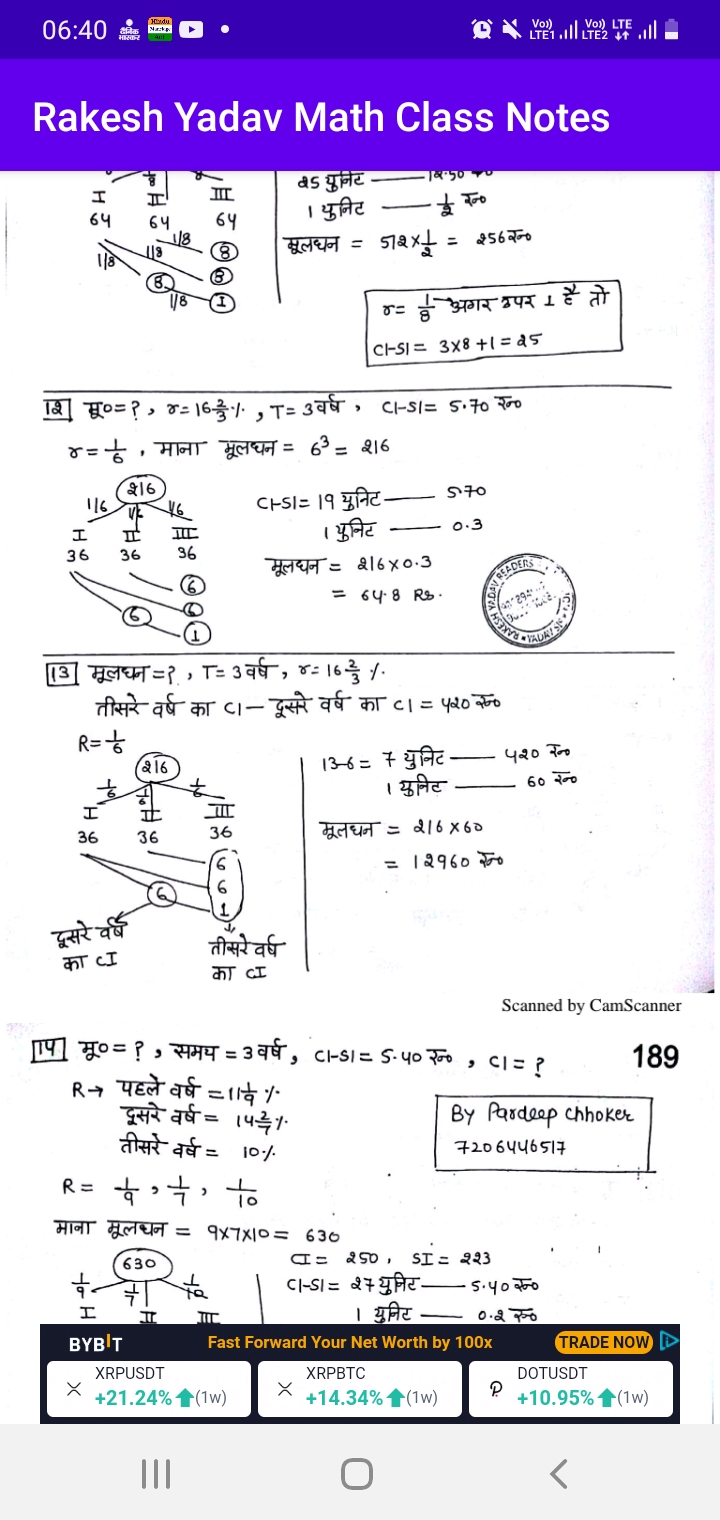 06:40
Vo)) LTE1 Vo)) LTE2 LTE
Rakesh Yadav Math Class Notes
I II III
64 64 64
1/8
1/8 1/8 8
8
8
1/8 1
25 युनिट — 12.50 रु०
1 युनिट — 1/2 रु०
मूलधन = 512 × 1/2 = 256 रु०
r = 1/8 अगर उपर 1 है तो
CI-SI = 3×8+1 = 25
12 मू० = ? , r = 16 2/3 % , T = 3 वर्ष , CI-SI = 5.70 रु०
r = 1/6 , माना मूलधन = 6³ = 216
216
1/6 1/6 1/6
I II III
36 36 36
6
6 6
1
CI-SI = 19 युनिट — 5.70
1 युनिट — 0.3
मूलधन = 216 × 0.3
= 64.8 Rs.
13 मूलधन = ? , T = 3 वर्ष , r = 16 2/3 %.
तीसरे वर्ष का CI — दूसरे वर्ष का CI = 420 रु०
R = 1/6
216
1/6 1/6 1/6
I II III
36 36 36
6
6 6
1
दूसरे वर्ष
का CI
तीसरे वर्ष
का CI
13-6 = 7 युनिट — 420 रु०
1 युनिट — 60 रु०
मूलधन = 216 × 60
= 12960 रु०
Scanned by CamScanner
14 मू० = ? , समय = 3 वर्ष , CI-SI = 5.40 रु० , CI = ?
189
R → पहले वर्ष = 11 1/9 %
दूसरे वर्ष = 14 2/7 %
तीसरे वर्ष = 10 %
By Pardeep Chhoker
7206446517
R = 1/9 , 1/7 , 1/10
माना मूलधन = 9×7×10 = 630
630
1/9 1/7 1/10
I II III
CI = 250 , SI = 223
CI-SI = 27 युनिट — 5.40 रु०
1 युनिट — 0.2 रु०
BYBIT
Fast Forward Your Net Worth by 100x
TRADE NOW
XRPUSDT
+21.24% (1w)
XRPBTC
+14.34% (1w)
DOTUSDT
+10.95% (1w)